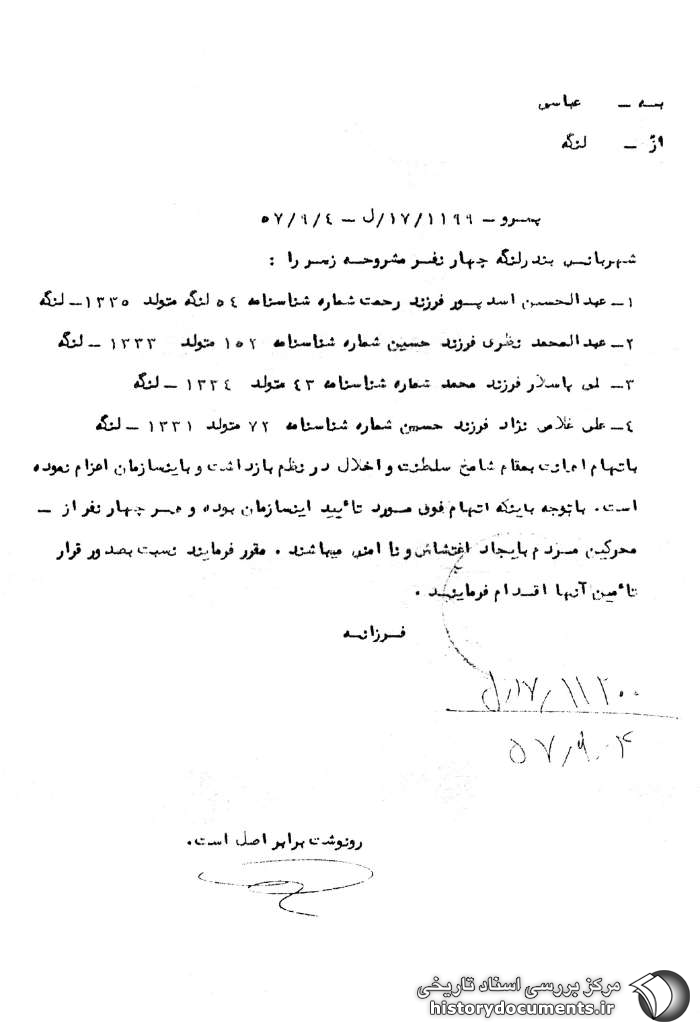 به – عباس
از – لنگه
پیرو – ۱۷/۱۱۹۹/ل – ۵۷/۹/۴
شهربانی بندرلنگه چهار نفر مشروحه زیر را :
۱– عبدالحسین اسدپور فرزند رحمت شماره شناسنامه ۵۴ لنگه متولد ۱۳۳۵– لنگه
۲– عبدالمحمد نظری فرزند حسین شماره شناسنامه ۱۵۲ متولد ۱۳۳۳ – لنگه
۳– پاسلار فرزند محمد شماره شناسنامه ۴۳ متولد ۱۳۳۴ – لنگه
۴– علی غلامی نژاد فرزند حسین شماره شناسنامه ۷۲ متولد ۱۳۳۱ – لنگه
باتهام اهانت بمقام شامخ سلطنت و اخلال در نظم بازداشت و باینسازمان اعزام نموده
است. باتوجه باینکه اتهام فوق مورد تأیید اینسازمان بوده و هر چهار نفر از –
محرکین مردم بایجاد اغتشاش و نا امنی میباشند . مقرر فرمایند نسبت بصدور قرار
تأمین آنها اقدام فرمایند .
فرزانه
۱۷/۱۱۲۰۰/ل
۵۷/۹/۰۴
رونوشت برابر اصل است.
مرکز بررسی اسناد تاریخی
historydocuments.ir